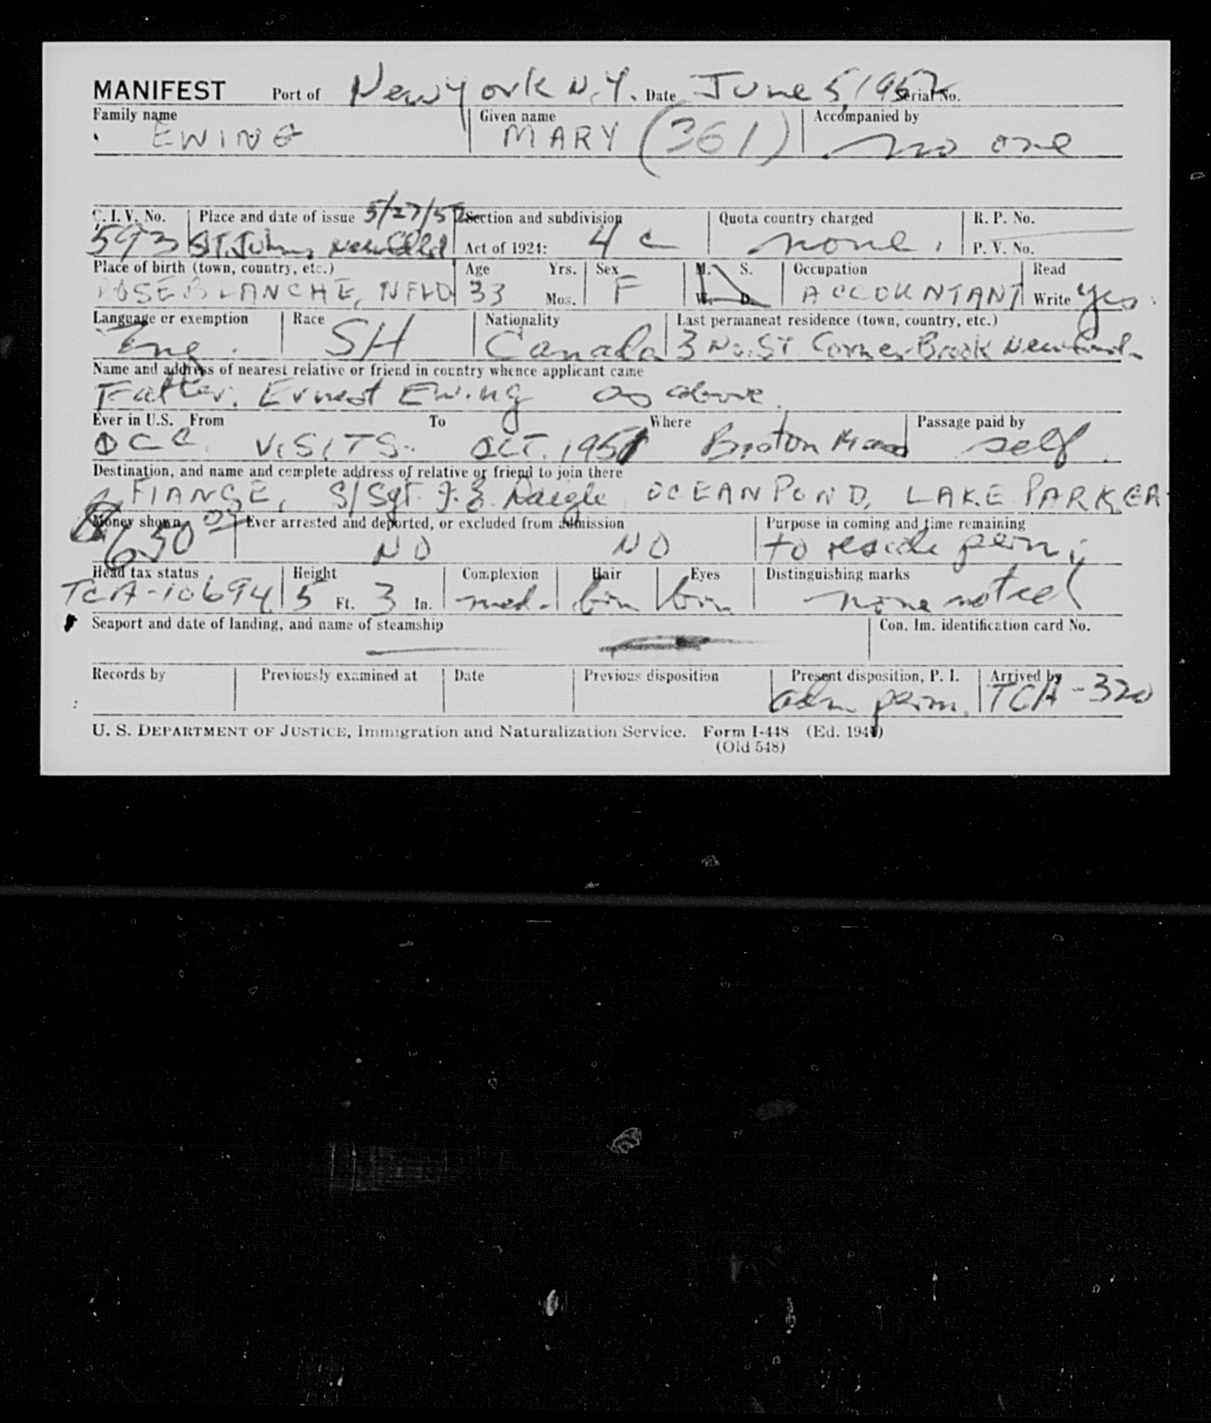 MANIFEST Port of New York N.Y. Date June 5, 1952 Serial No.
Family name Given name Accompanied by
EWING MARY (361) no one
C. I. V. No. Place and date of issue 5/27/52 Section and subdivision Quota country charged R. P. No.
593 St. Johns, Act of 1924: 4 c none. P. V. No.
Place of birth (town, country, etc.) Age Yrs. Sex M. S. Occupation Read
ROSE BLANCHE, NFLD 33 Mos. F W. D. ACCOUNTANT Write yes.
Language or exemption Race Nationality Last permanent residence (town, country, etc.)
Eng. SH Canada 3 No. ST Corner Brook
Name and address of nearest relative or friend in country whence applicant came
Father. Ernest Ewing as above.
Ever in U.S. From To Where Passage paid by
OCC. VISITS. OCT. 1951 Boston Mass self.
Destination, and name and complete address of relative or friend to join there
FIANCE, S/Sgt. OCEAN POND, LAKE PARKER
Money shown Ever arrested and deported, or excluded from admission Purpose in coming and time remaining
$630 00 NO NO to reside perm;
Head tax status Height Complexion Hair Eyes Distinguishing marks
TCA-10694 5 Ft. 3 In. med. brn brn none noted
Seaport and date of landing, and name of steamship Con. Im. identification card No.
Records by Previously examined at Date Previous disposition Present disposition, P. I. Arrived by
adm perm. TCA-320
U. S. DEPARTMENT OF JUSTICE, Immigration and Naturalization Service. Form I-448 (Ed. 194)
(Old 548)